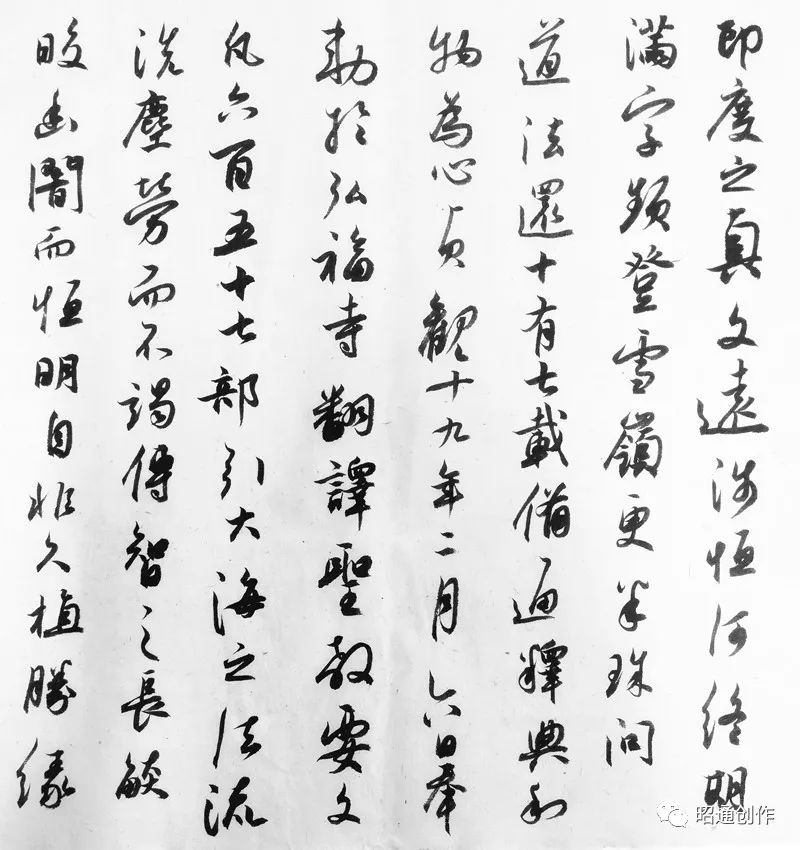 印度之真文遠涉恒河終期
滿字頻登雪嶺更半珠問
道法還十有七載備通釋典利
物為心貞觀十九年二月六日奉
勅於弘福寺翻譯聖教要文
凡六百五十七部引大海之法流
洗塵勞而不竭傳智之長燄
晈幽闇而恒明自非久植勝緣
昭通创作